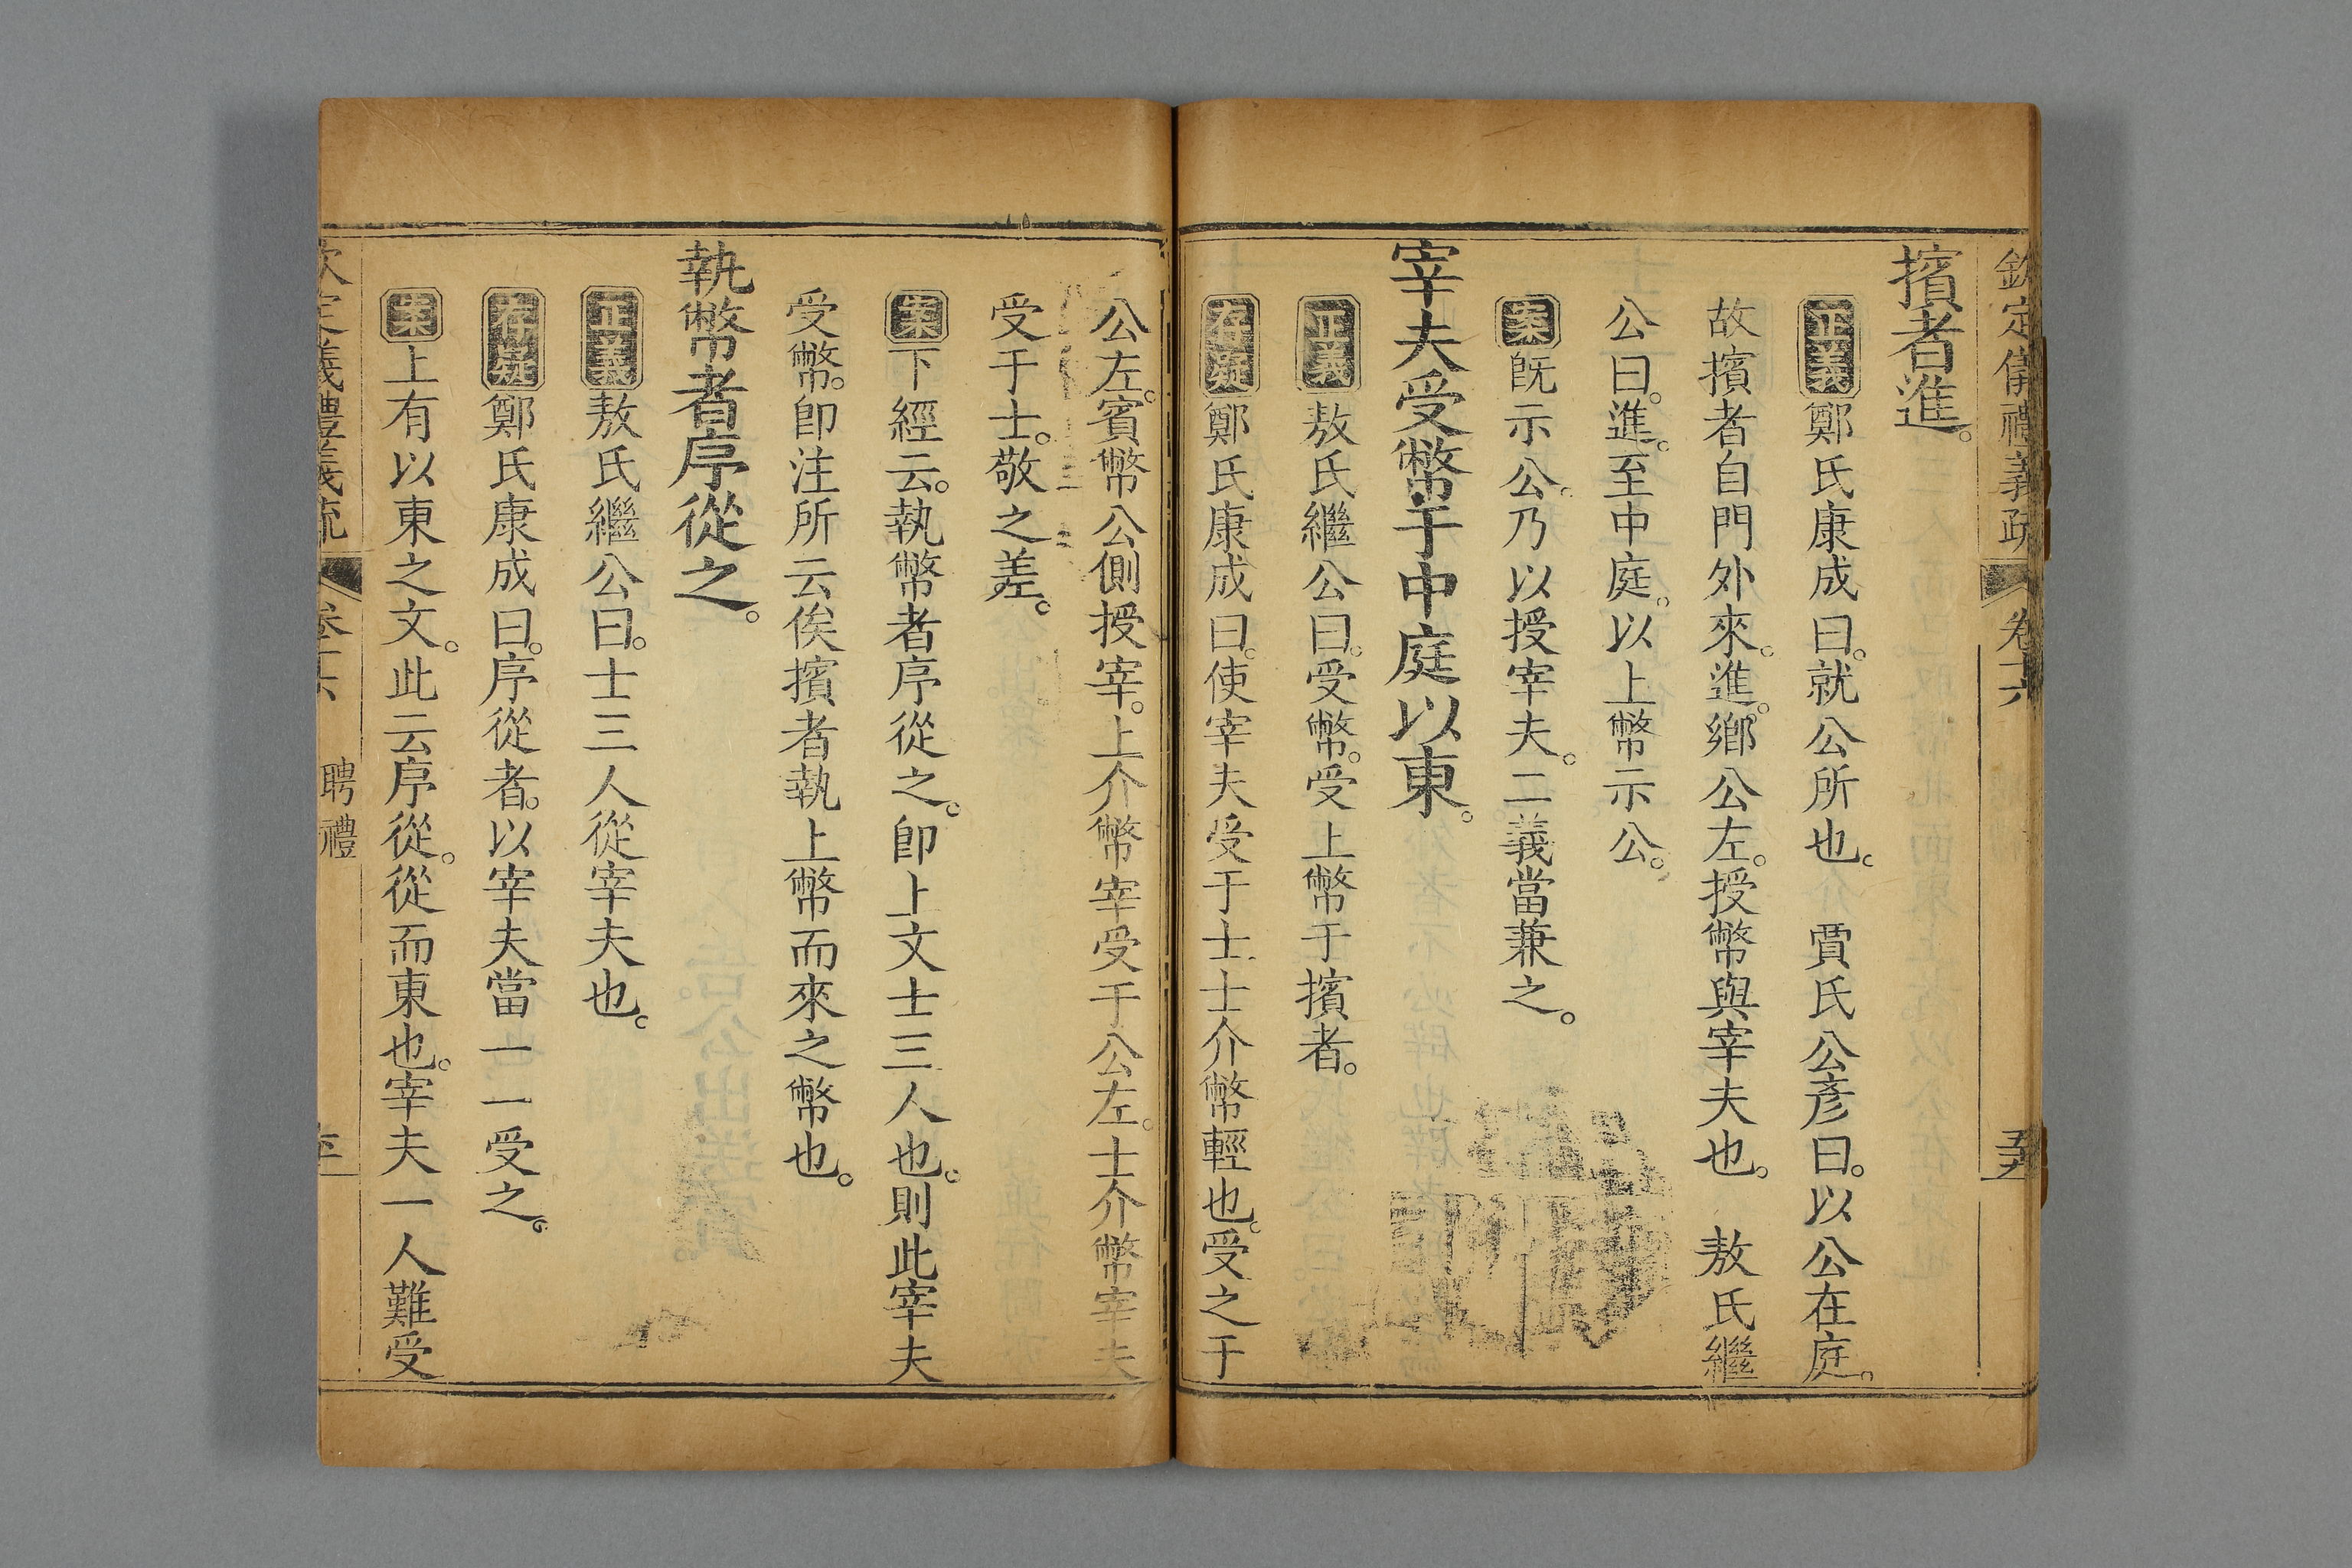 欽定儀禮義疏 卷十六
擯者進。
正義鄭氏康成曰。就公所也。 賈氏公彥曰。以公在庭。
故擯者自門外來。進。鄉公左。授幣與宰夫也。 敖氏繼
公曰。進。至中庭。以上幣示公。
案旣示公。乃以授宰夫。二義當兼之。
宰夫受幣于中庭以東。
正義敖氏繼公曰。受幣。受上幣于擯者。
存疑鄭氏康成曰。使宰夫受于士士介幣輕也。受之于
公左。賓幣公側授宰。上介幣宰受于公左。士介幣宰夫
受于士。敬之差。
案下經云。執幣者序從之。卽上文士三人也。則此宰夫
受幣。卽注所云俟擯者執上幣而來之幣也。
執幣者序從之。
正義敖氏繼公曰。士三人從宰夫也。
存疑鄭氏康成曰。序從者。以宰夫當一一受之。
案上有以東之文。此云序從。從而東也。宰夫一人難受
欽定義禮義疏 卷十六 聘禮